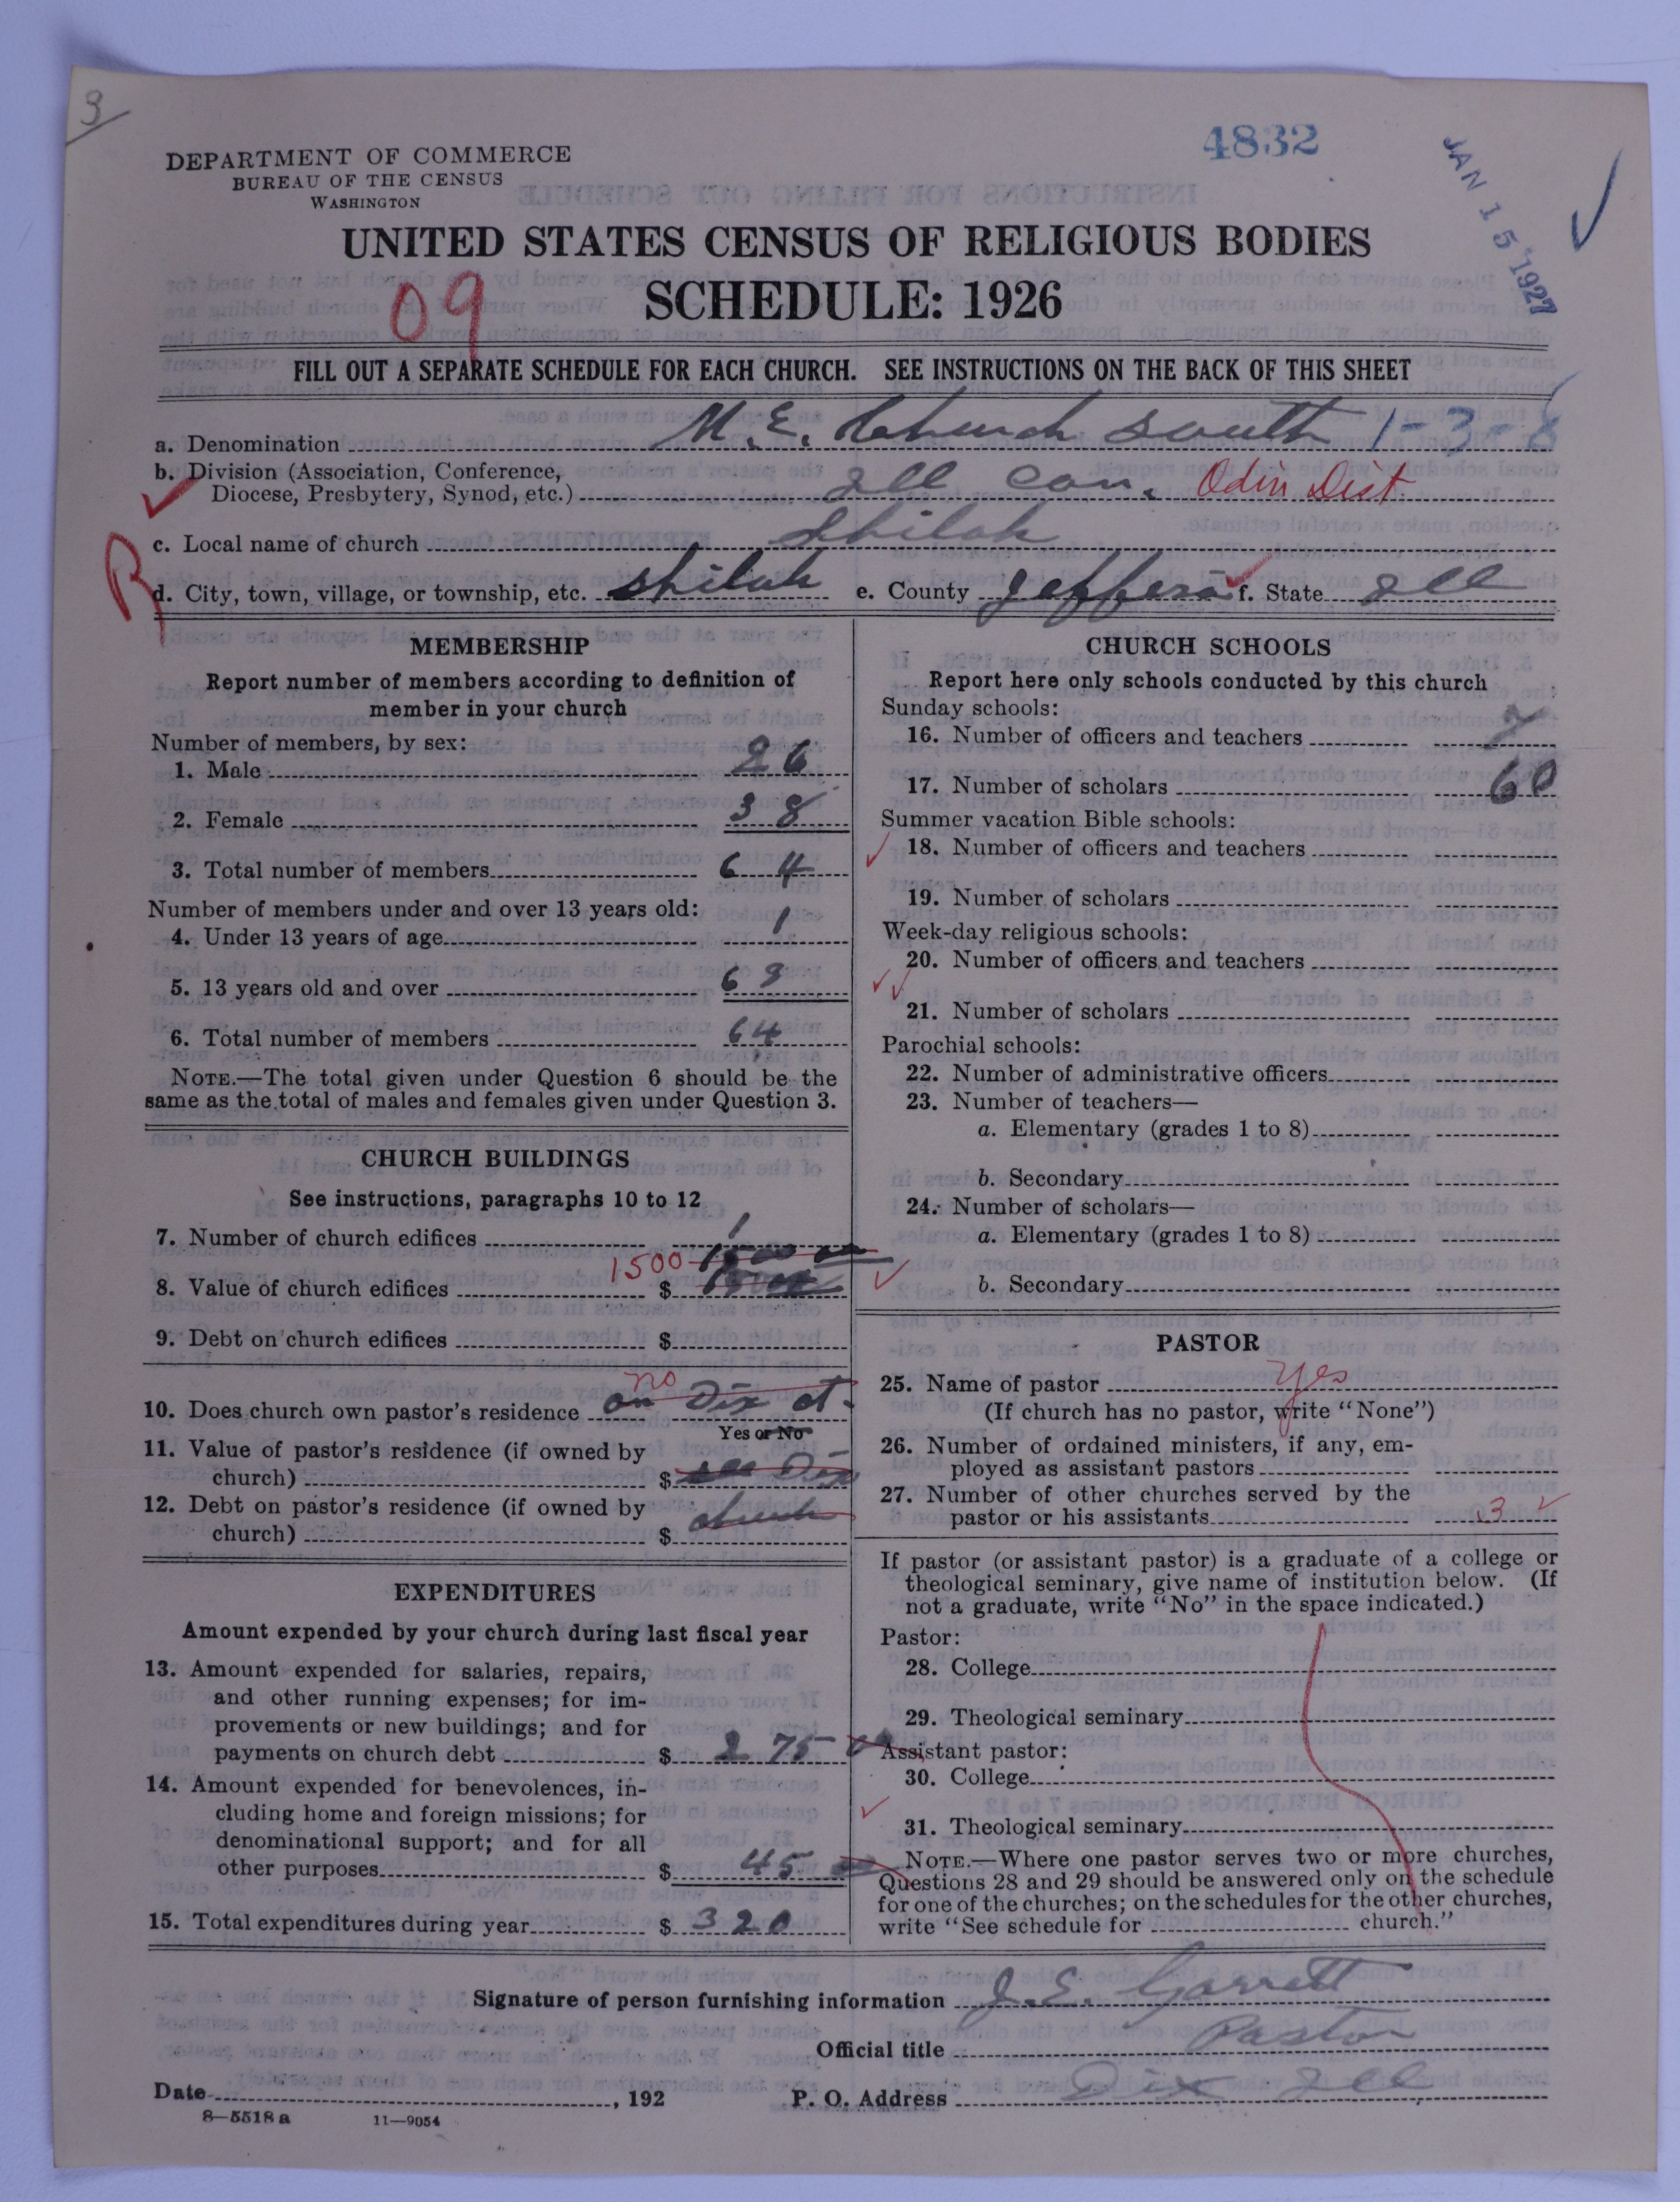 3
4832
JAN 15 1927
DEPARTMENT OF COMMERCE
BUREAU OF THE CENSUS
WASHINGTON
UNITED STATES CENSUS OF RELIGIOUS BODIES
09 SCHEDULE: 1926
FILL OUT A SEPARATE SCHEDULE FOR EACH CHURCH. SEE INSTRUCTIONS ON THE BACK OF THIS SHEET
a. Denomination M. E. Church South 1-3-8
b. Division (Association, Conference,
Diocese, Presbytery, Synod, etc.) Ill Con. Odin Dist.
c. Local name of church Shiloh
R
d. City, town, village, or township, etc. Shiloh e. County Jefferson f. State Ill
MEMBERSHIP
Report number of members according to definition of
member in your church
Number of members, by sex:
1. Male 26
2. Female 38
3. Total number of members 64
Number of members under and over 13 years old:
4. Under 13 years of age 1
5. 13 years old and over 63
6. Total number of members 64
NOTE.—The total given under Question 6 should be the
same as the total of males and females given under Question 3.
CHURCH BUILDINGS
See instructions, paragraphs 10 to 12
7. Number of church edifices 1
1500 1500 00
8. Value of church edifices $
9. Debt on church edifices $
no
10. Does church own pastor's residence on Dix ct.
Yes or No
11. Value of pastor's residence (if owned by
church) $ see Dix
12. Debt on pastor's residence (if owned by
church) $ church
EXPENDITURES
Amount expended by your church during last fiscal year
13. Amount expended for salaries, repairs,
and other running expenses; for im-
provements or new buildings; and for
payments on church debt $ 275 00
14. Amount expended for benevolences, in-
cluding home and foreign missions; for
denominational support; and for all
other purposes $ 45 00
15. Total expenditures during year $ 320
CHURCH SCHOOLS
Report here only schools conducted by this church
Sunday schools:
16. Number of officers and teachers 7
17. Number of scholars 60
Summer vacation Bible schools:
18. Number of officers and teachers
19. Number of scholars
Week-day religious schools:
20. Number of officers and teachers
21. Number of scholars
Parochial schools:
22. Number of administrative officers
23. Number of teachers—
a. Elementary (grades 1 to 8)
b. Secondary
24. Number of scholars—
a. Elementary (grades 1 to 8)
b. Secondary
PASTOR
25. Name of pastor yes
(If church has no pastor, write "None")
26. Number of ordained ministers, if any, em-
ployed as assistant pastors
27. Number of other churches served by the
pastor or his assistants 3
If pastor (or assistant pastor) is a graduate of a college or
theological seminary, give name of institution below. (If
not a graduate, write "No" in the space indicated.)
Pastor:
28. College
29. Theological seminary
Assistant pastor:
30. College
31. Theological seminary
NOTE.—Where one pastor serves two or more churches,
Questions 28 and 29 should be answered only on the schedule
for one of the churches; on the schedules for the other churches,
write "See schedule for church."
Signature of person furnishing information J. E. Garrett
Official title Pastor
Date , 192 P. O. Address Dix Ill
8—5518 a 11—9054